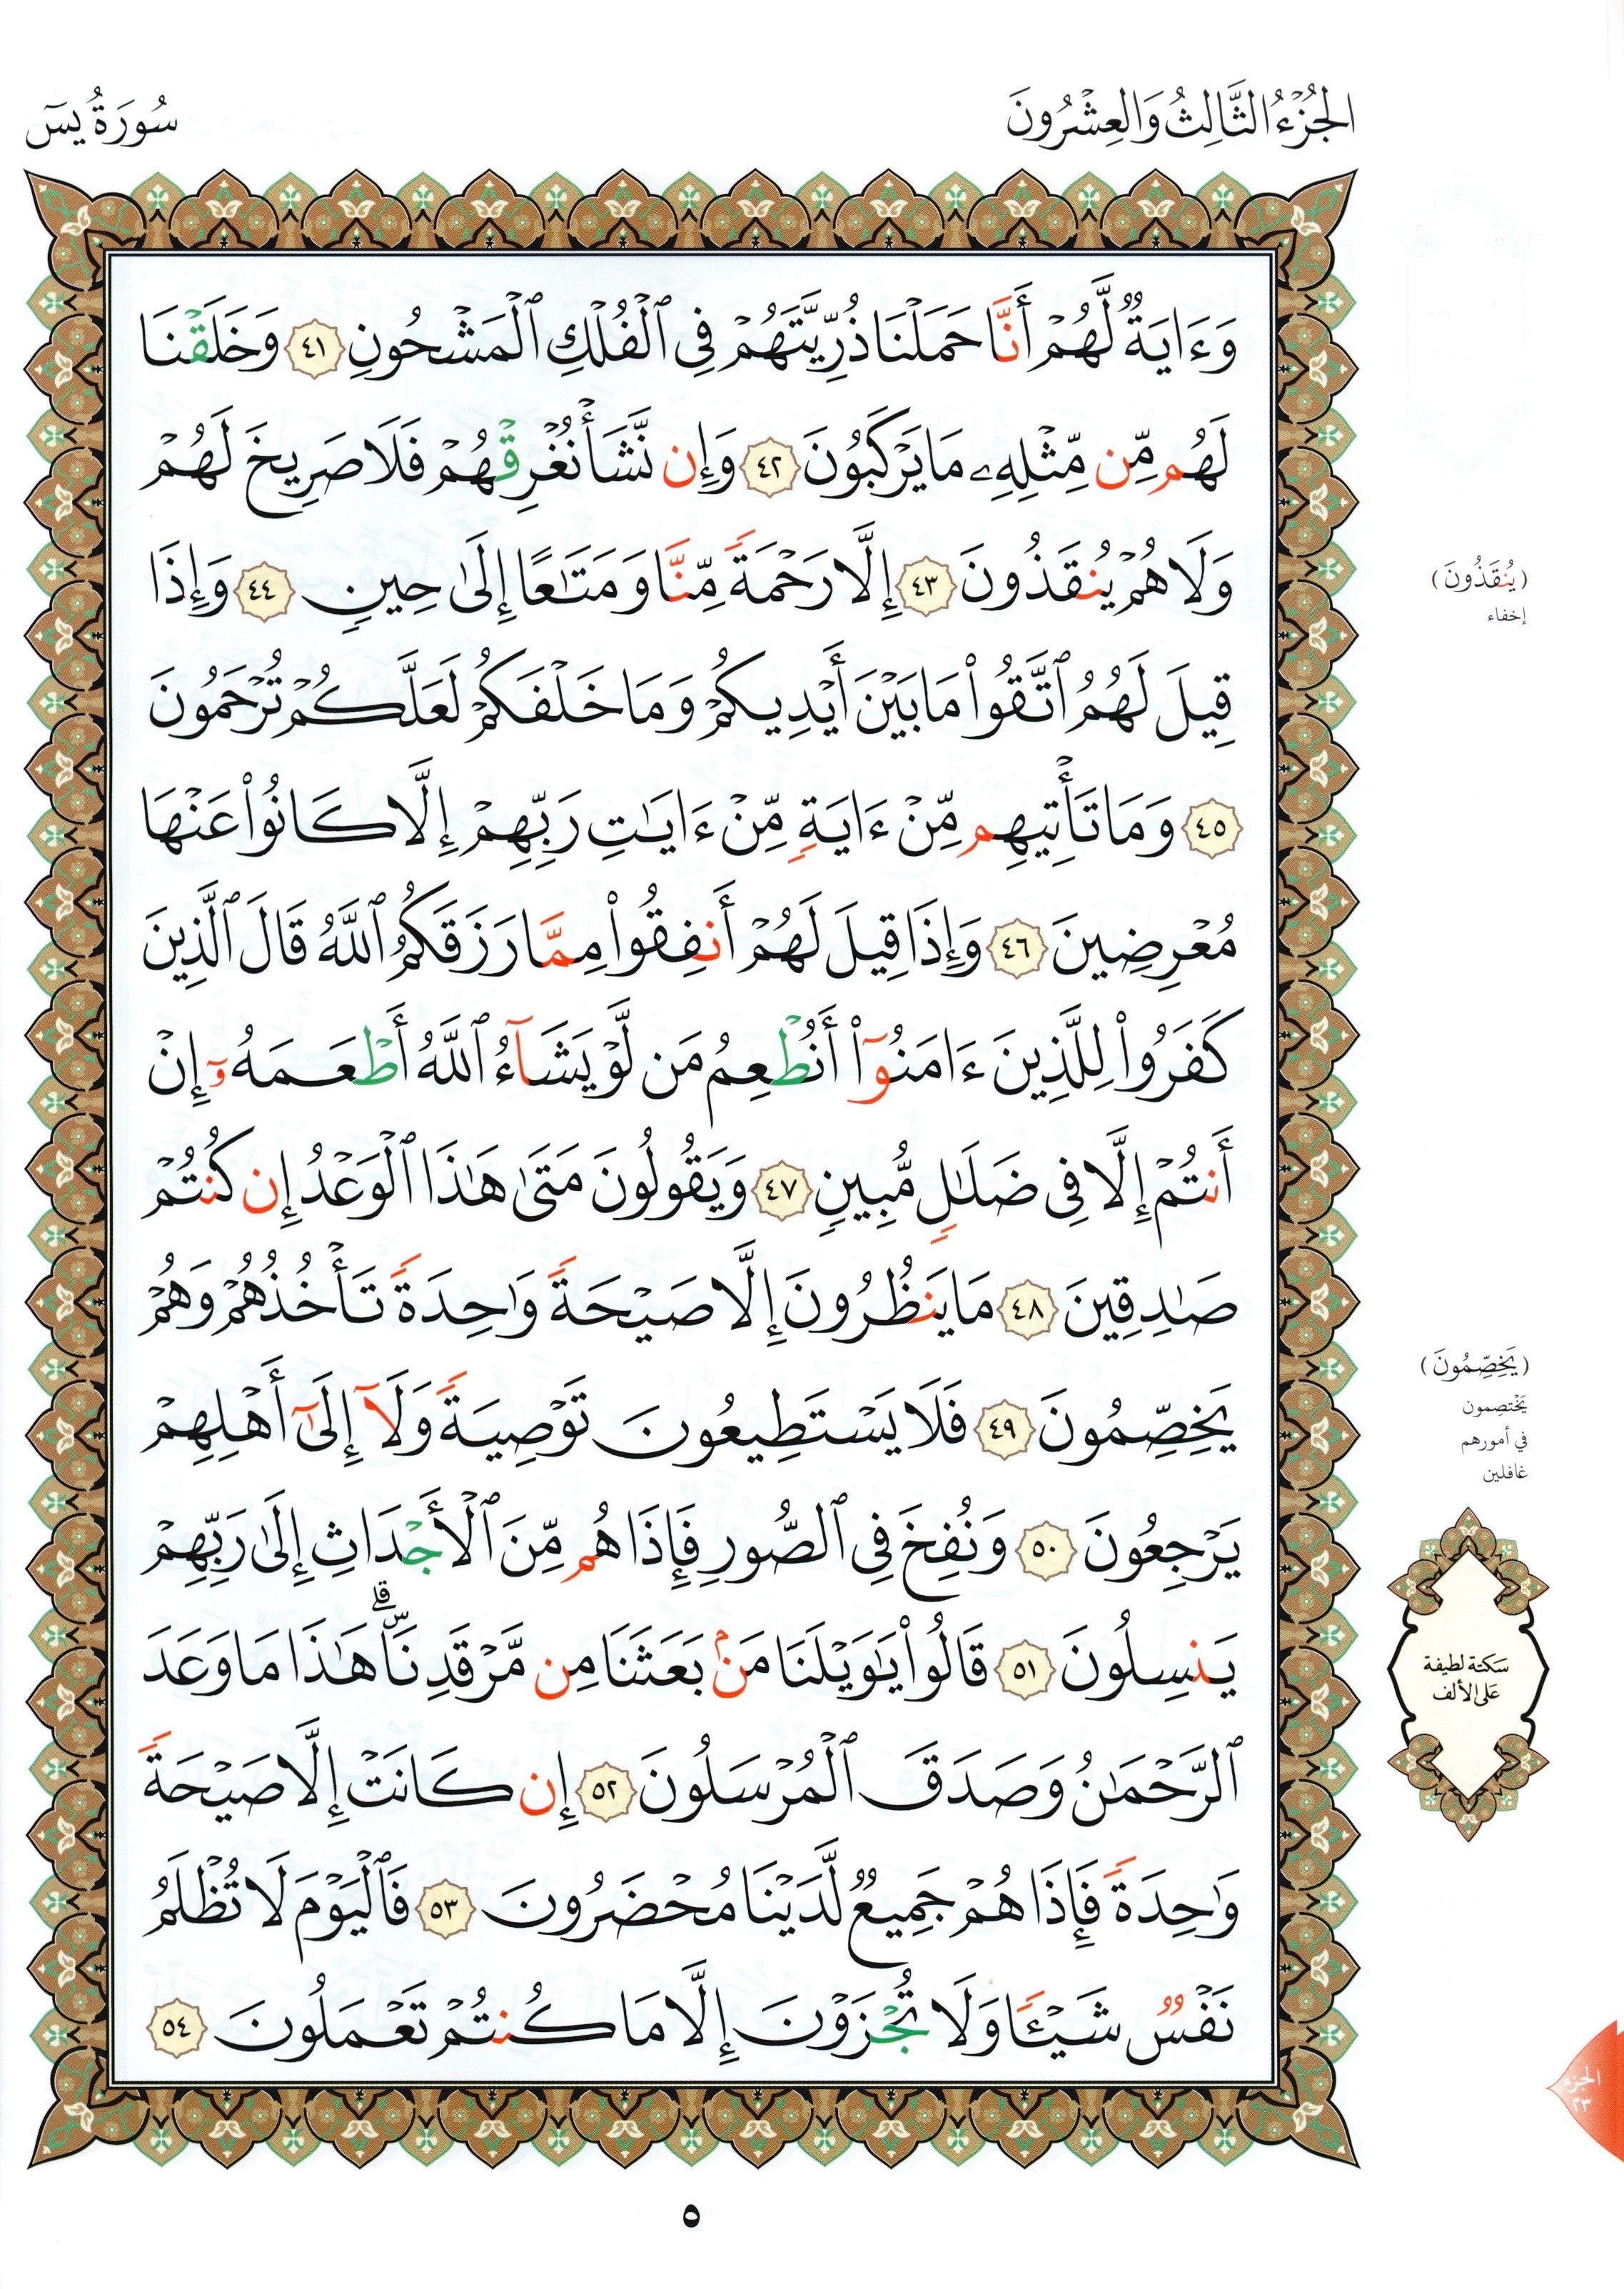 الجُزْءُ الثَّالِثُ وَالعِشْرُونَ
سُورَةُ يسٓ
وَءَايَةٌ لَّهُمْ أَنَّا حَمَلْنَا ذُرِّيَّتَهُمْ فِى ٱلْفُلْكِ ٱلْمَشْحُونِ ٤١ وَخَلَقْنَا
لَهُم مِّن مِّثْلِهِۦ مَا يَرْكَبُونَ ٤٢ وَإِن نَّشَأْ نُغْرِقْهُمْ فَلَا صَرِيخَ لَهُمْ
وَلَا هُمْ يُنقَذُونَ ٤٣ إِلَّا رَحْمَةً مِّنَّا وَمَتَٰعًا إِلَىٰ حِينٍ ٤٤ وَإِذَا
قِيلَ لَهُمُ ٱتَّقُوا۟ مَا بَيْنَ أَيْدِيكُمْ وَمَا خَلْفَكُمْ لَعَلَّكُمْ تُرْحَمُونَ
٤٥ وَمَا تَأْتِيهِم مِّنْ ءَايَةٍ مِّنْ ءَايَٰتِ رَبِّهِمْ إِلَّا كَانُوا۟ عَنْهَا
مُعْرِضِينَ ٤٦ وَإِذَا قِيلَ لَهُمْ أَنفِقُوا۟ مِمَّا رَزَقَكُمُ ٱللَّهُ قَالَ ٱلَّذِينَ
كَفَرُوا۟ لِلَّذِينَ ءَامَنُوٓا۟ أَنُطْعِمُ مَن لَّوْ يَشَآءُ ٱللَّهُ أَطْعَمَهُۥٓ إِنْ
أَنتُمْ إِلَّا فِى ضَلَٰلٍ مُّبِينٍ ٤٧ وَيَقُولُونَ مَتَىٰ هَٰذَا ٱلْوَعْدُ إِن كُنتُمْ
صَٰدِقِينَ ٤٨ مَا يَنظُرُونَ إِلَّا صَيْحَةً وَٰحِدَةً تَأْخُذُهُمْ وَهُمْ
يَخِصِّمُونَ ٤٩ فَلَا يَسْتَطِيعُونَ تَوْصِيَةً وَلَآ إِلَىٰٓ أَهْلِهِمْ
يَرْجِعُونَ ٥٠ وَنُفِخَ فِى ٱلصُّورِ فَإِذَا هُم مِّنَ ٱلْأَجْدَاثِ إِلَىٰ رَبِّهِمْ
يَنسِلُونَ ٥١ قَالُوا۟ يَٰوَيْلَنَا مَنۢ بَعَثَنَا مِن مَّرْقَدِنَاۜۗ هَٰذَا مَا وَعَدَ
ٱلرَّحْمَٰنُ وَصَدَقَ ٱلْمُرْسَلُونَ ٥٢ إِن كَانَتْ إِلَّا صَيْحَةً
وَٰحِدَةً فَإِذَا هُمْ جَمِيعٌ لَّدَيْنَا مُحْضَرُونَ ٥٣ فَٱلْيَوْمَ لَا تُظْلَمُ
نَفْسٌ شَيْـًٔا وَلَا تُجْزَوْنَ إِلَّا مَا كُنتُمْ تَعْمَلُونَ ٥٤
(يُنقَذُونَ)
إخفاء
(يَخِصِّمُونَ)
يَختصِمون
في أمورهم
غافلين
سَكتة لطيفة
عَلى الألف
الجزء
٢٣
٥